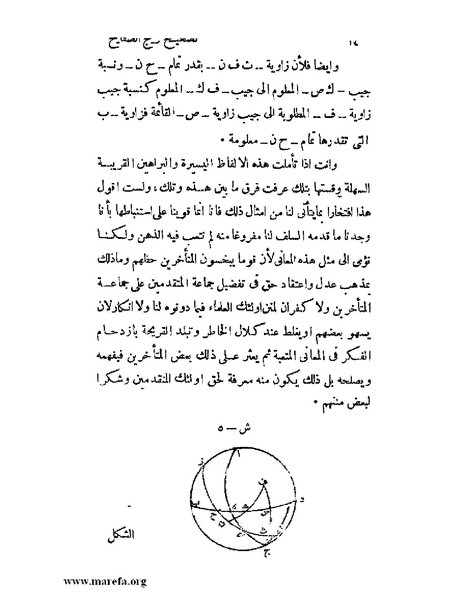 ١٤ تصحيح زيج الصفايح
وايضا فلأن زاوية ــ ث ف ن ــ بقدر تمام ــ ح ن ــ ونسبة
جيب ــ ك ص ــ المعلوم الى جيب ــ ف ك ــ المعلوم كنسبة جيب
زاوية ــ ف ــ المطلوبة الى جيب زاوية ــ ص ــ القائمة فزاوية ــ ب
التى تقدرها تمام ــ ح ن ــ معلومة ٠
وانت اذا تأملت هذه الالفاظ اليسيرة والبراهين القريبة
السهلة وقستها بتلك عرفت فرق ما بين هــذه وتلك، ولست اقول
هذا افتخارا بمايتأتى لنا من امثال ذلك فانا انما قوينا على استنباطها بأنا
وجدنا ما قدمه السلف لنا مفروغا منه لم تتعب فيه الذهن ولكنــا
نومى الى مثل هذه المعانى لأن قوما يبخسون المتأخرين حظهم وماذلك
بمذهب عدل واعتقاد حق فى تفضيل جماعة المتقدمين على جماعــة
المتأخرين ولا كفران لمنن اولئك العلماء فيما دونوه لنا ولا انكارلان
يسهو بعضهم اويغلط عند كلال الخاطر وتبلد القريحة بازدحام
الفكر فى المعانى المتعبة ثم يعثر عــلى ذلك بعض المتأخرين فيفهمه
ويصلحه بل ذلك يكون منه معرفة لحق اولئك المتقدمين وشكرا
لبعض مننهم ٠
ش ــ ٥
الشكل
www.marefa.org